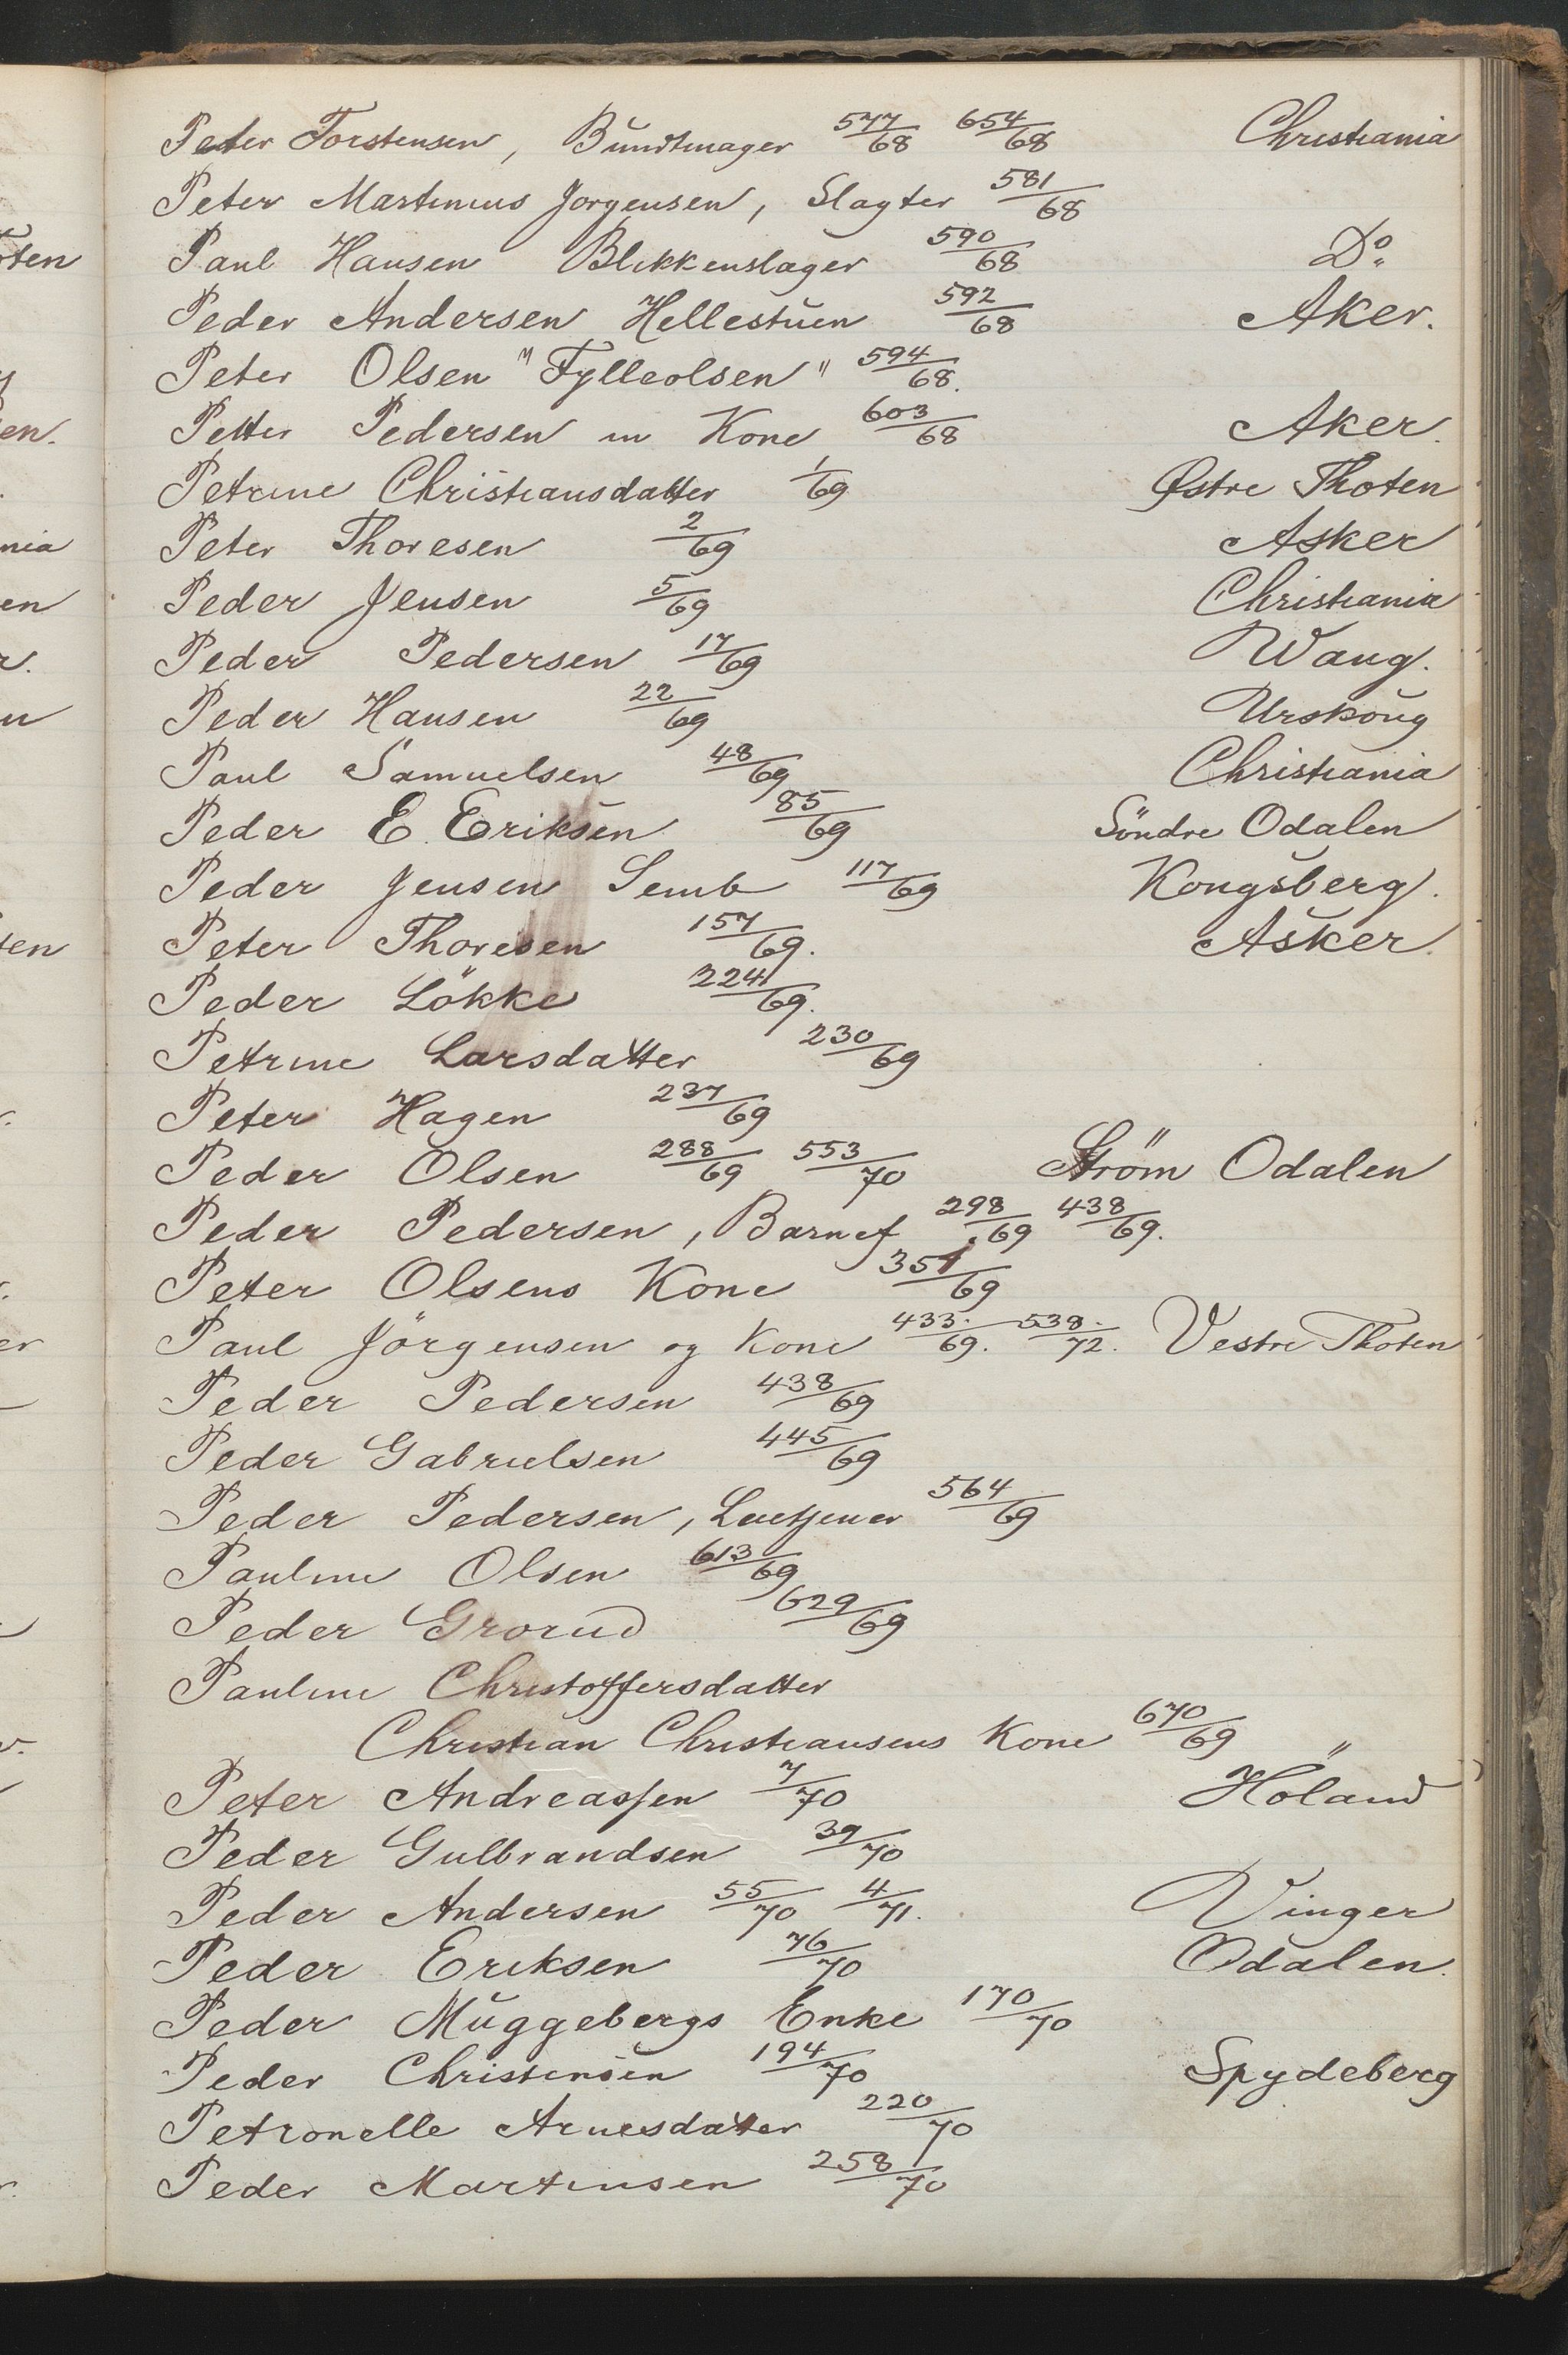 Peter Torstensen, Bundtmager 577/68 654/68 Christiania
Peter Martinius Jorgensen, Slagter 581/68
Paul Hansen Blikkenslager 590/68 Do
Peder Andersen Hellestuen 592/68 Aker.
Peter Olsen "Fylleolsen" 594/68.
Petter Pedersen m Kone 603/68 Aker.
Petrine Christiansdatter 1/69 Østre Thoten
Peter Thoresen 2/69 Asker
Peder Jensen 5/69 Christiania
Peder Pedersen 17/69 Wang.
Peder Hansen 22/69 Urskoug
Paul Samuelsen 48/69 Christiania
Peder E. Eriksen 85/69 Söndre Odalen
Peder Jensen Semb 117/69 Kongsberg.
Peter Thoresen 157/69. Asker.
Peder Lökke 224/69.
Petrine Larsdatter 230/69
Peter Hagen 237/69
Peder Olsen 288/69 553/70 Ström Odalen
Peder Pedersen, Barnef 298/69 438/69.
Peter Olsens Kone 351/69
Paul Jörgensen og Kone 433/69. 538/72. Vestre Thoten
Peder Pedersen 438/69
Peder Gabrielsen 445/69
Peder Pedersen, 564/69
Pauline Olsen 613/69
Peder Grorud 629/69
Pauline Christoffersdatter
Christian Christiansens Kone 670/69
Peter Andreassen 7/70 Höland
Peder Gulbrandsen 39/70
Peder Andersen 55/70 4/71. Vinger
Peder Eriksen 76/70 Odalen.
Peder Muggebergs Enke 170/70
Peder Christensen 194/70 Spydeberg
Petronelle Arnesdatter 220/70
Peder Martinsen 258/70